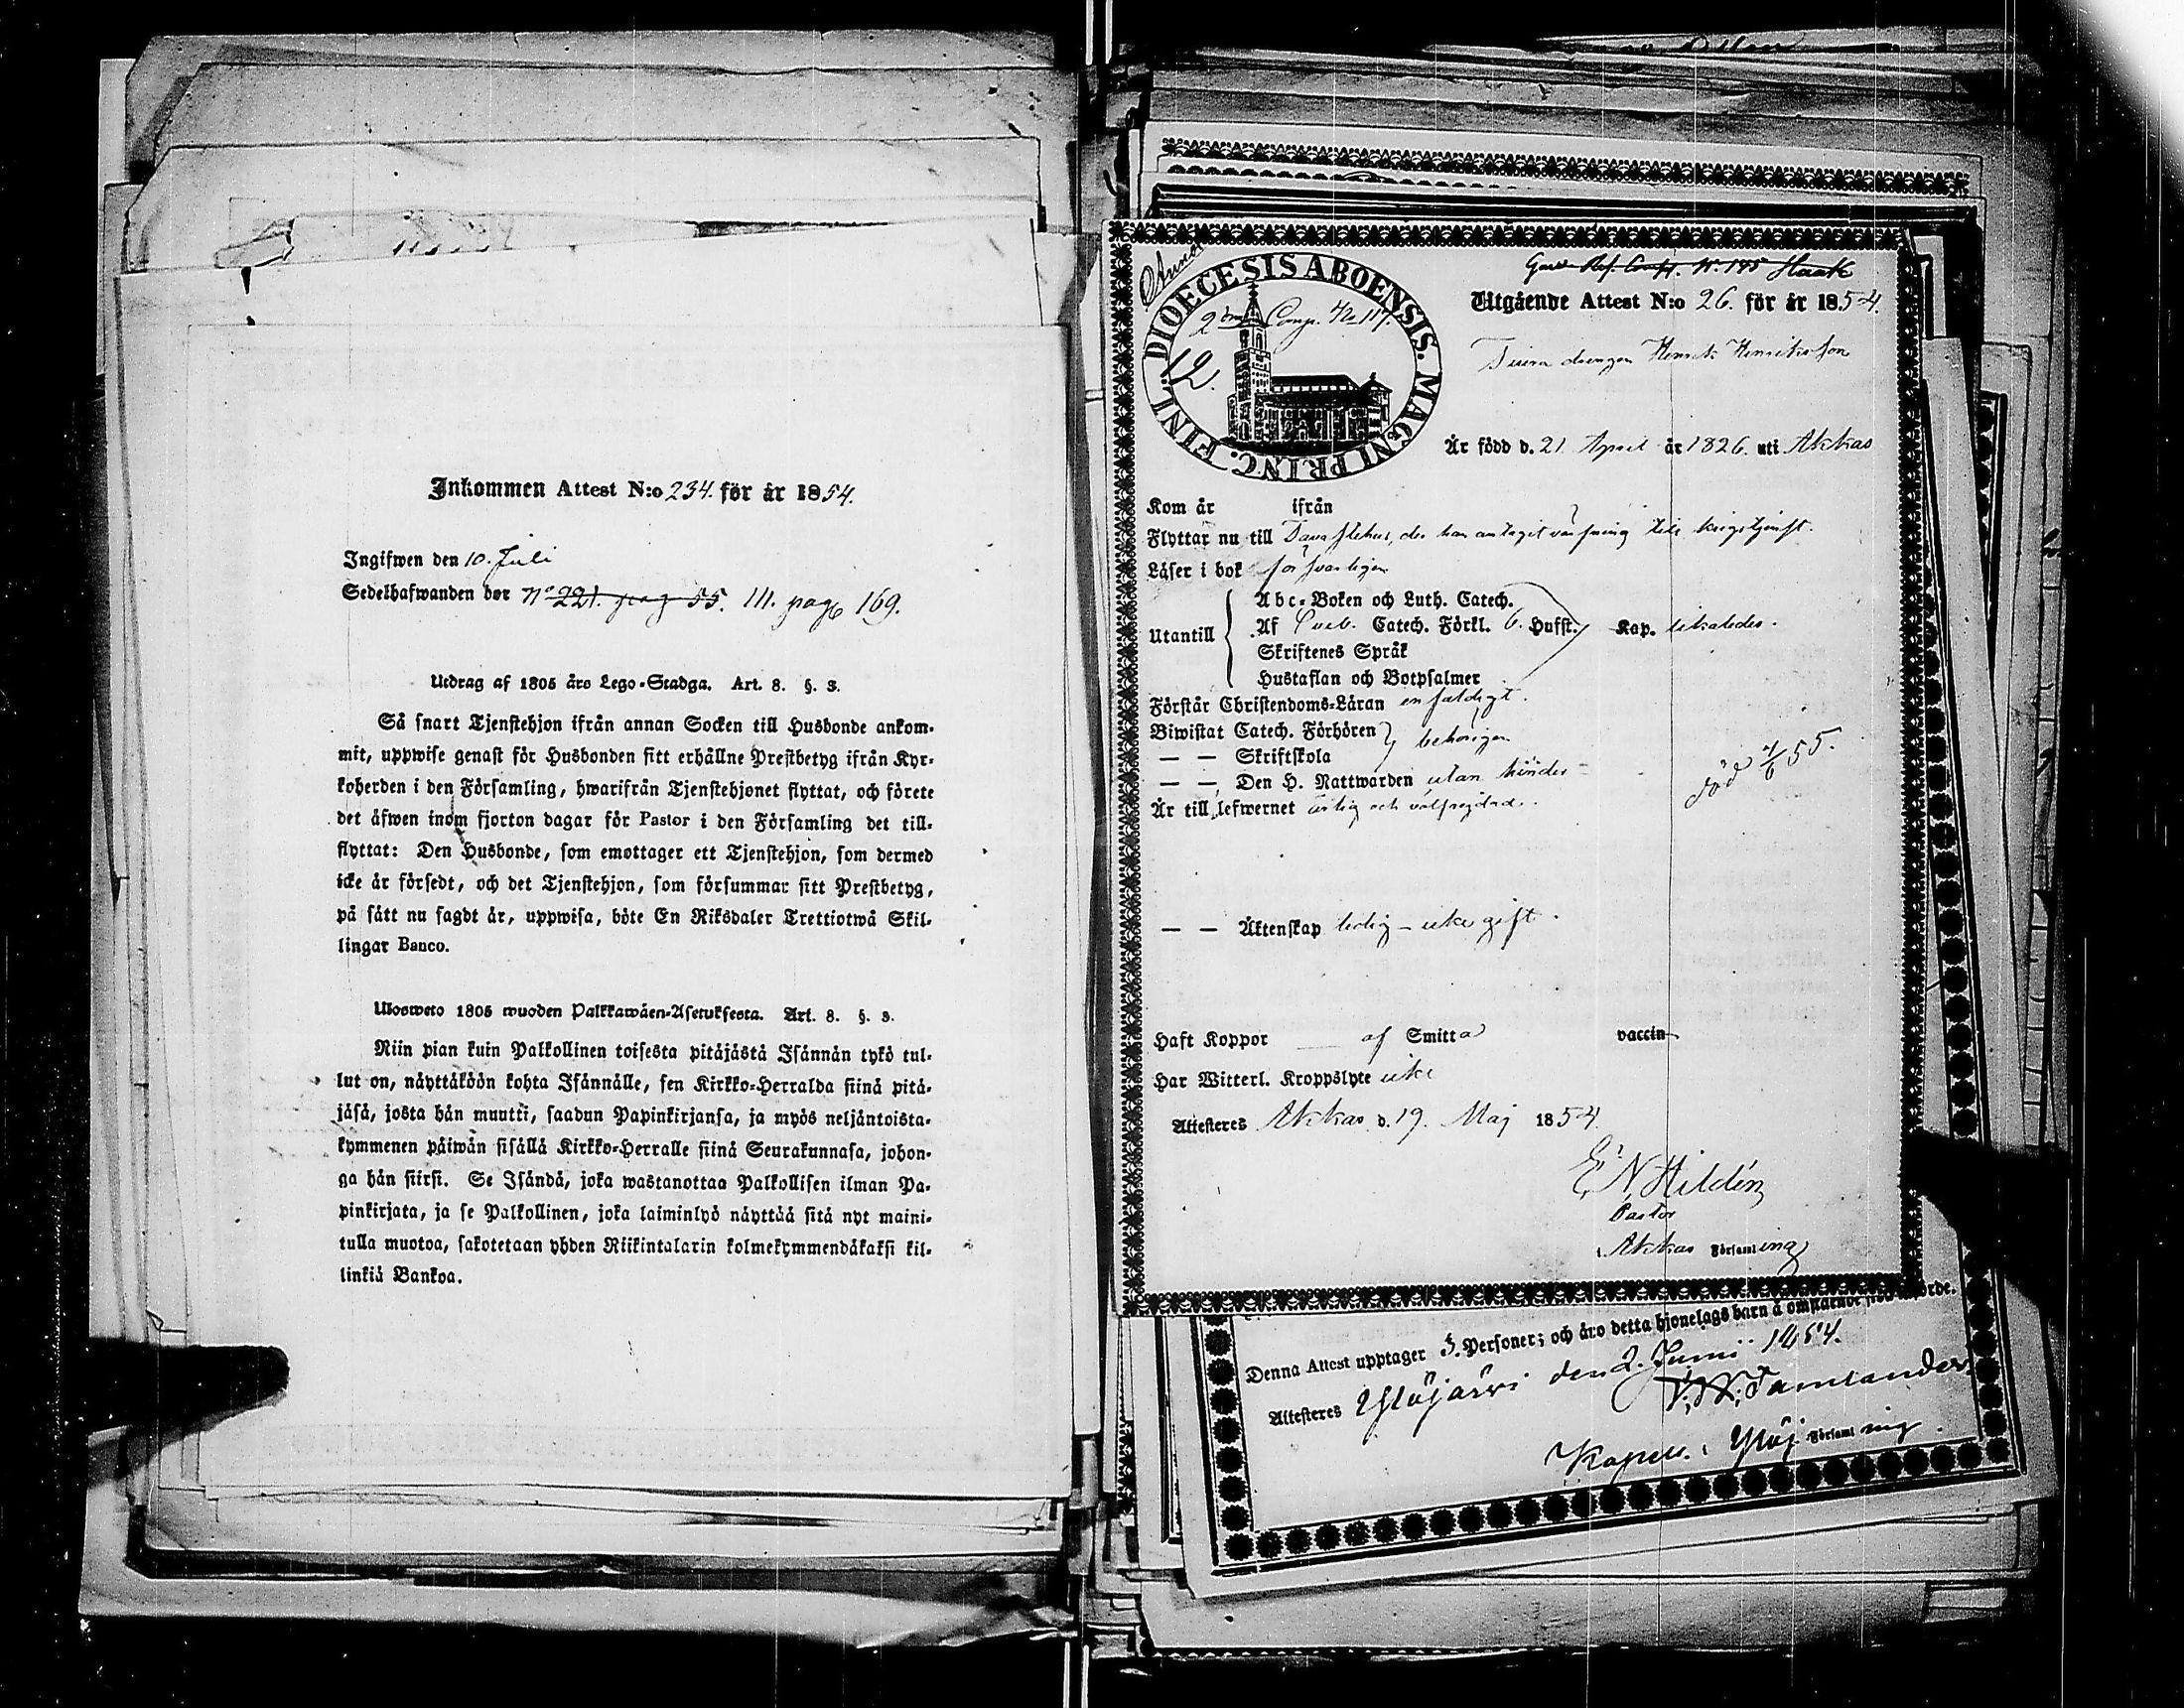 Inkommen Attest N:o 234. för år 1854.
Ingifwen den 10. Juli
Sedelhafwanden bor No 221. pag 55. 111. pag 169.
Utdrag af 1805 års Lego-Stadga. Art. 8. §. 3.
Så snart Tjenstehjon ifrån annan Socken till Husbonde ankom-
mit, uppwise genast för Husbonden sitt erhållne Prestbetyg ifrån Kyr-
koherden i den Församling, hwarifrån Tjenstehjonet flyttat, och förete
det äfwen inom fjorton dagar för Pastor i den Församling det till-
flyttat: Den Husbonde, som emottager ett Tjenstehjon, som dermed
icke är försedt, och det Tjenstehjon, som försummar sitt Prestbetyg,
på sätt nu sagdt är, uppwisa, böte En Riksdaler Trettiotwå Skil-
lingar Banco.
Ulosweto 1805 wuoden Palkkawäen-Asetuksesta. Art. 8. §. 3.
Niin pian kuin Palkollinen toisesta pitäjästä Isännän tykö tul-
lut on, näyttäköön kohta Isännälle, sen Kirkko-Herralda siinä pitä-
jäsä, josta hän muutti, saadun Papinkirjansa, ja myös neljäntoista-
kymmenen päiwän sisällä Kirkko-Herralle siinä Seurakunnasa, johon-
ga hän siirsi. Se Isändä, joka wastanottaa Palkollisen ilman Pa-
pinkirjata, ja se Palkollinen, joka laiminlyö näyttää sitä nyt maini-
tulla muotoa, sakotetaan yhden Riikintalarin kolmekymmendäkaksi kil-
linkiä Bankoa.
DIOECESIS ABOENSIS. MAGNI PRINC. FINL.
2 Comp. No 117.
12.
No. 195 Haak
Utgående Attest N:o 26. för år 1854.
drengen Henrik Henriksson
Är född d. 21 April år 1826. uti Akkas
Kom år ifrån
Flyttar nu till Tavastehus, der han antaget värfning till krigstjenst.
Läser i bok försvarligen
Utantill
Abc-Boken och Luth. Catech.
Af Catech. Förkl. 6. Hufst. Kap. likaledes.
Skriftenes Språk
Hustaflan och Botpsalmer
Förstår Christendoms-Läran enfaldigt.
Biwistat Catech. Förhören behörigen
— — Skriftskola
— — Den H. Nattwarden utan hinder
Är till lefwernet ärlig och välfrejdad.
död 4/6 55.
— — Äktenskap ledig – icke gift.
Haft Koppor af Smitta vaccin
Har Witterl. Kroppslyte icke
Attesteres Akkas d. 19. Maj 1854.
E. N. Hildén
Pastor
i Akkas Församling
Denna Attest upptager 5. Personer; och äro detta hjonelags barn å omstående sido
Attesteres Ylöjärvi den 2. Junii 1854.
Kapell. i Ylöj. Församling.